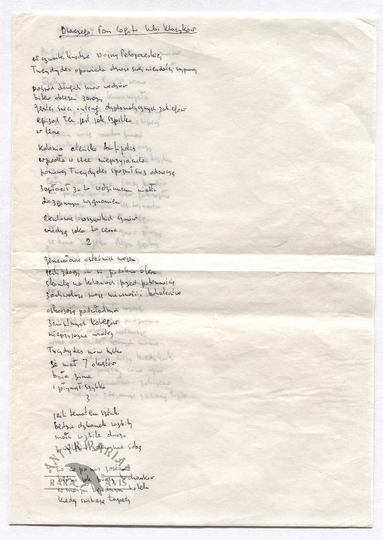 Dlaczego Pan Cogito lubi klasyków
w czwartej księdze Wojny Peloponeskiej
Tucydydes opowiada dzieje swej nieudanej wyprawy
pośród długich mów wodzów
bitew oblężeń zarazy
gęstej sieci intryg dyplomatycznych zabiegów
epizod ten jest jak szpilka
w lesie
kolonia ateńska Amfipolis
wpadła w ręce nieprzyjaciela
ponieważ Tucydydes spóźnił się z odsieczą
zapłacił za to rodzinnemu miastu
dozgonnym wygnaniem
exulowie wszystkich czasów
wiedzą jaka to cena
2
generałowie ostatnich wojen
jeśli zdarzy się podobna afera
skomlą na kolanach przed potomnością
zachwalają swoją niewinność i bohaterstwo
oskarżają podwładnych
zawistnych kolegów
nieprzyjazne wiatry
Tucydydes mówi tylko
że miał 7 okrętów
była zima
i płynął szybko
3
jeśli tematem sztuki
będzie dzbanek rozbity
mała rozbita dusza
nad sobą
ANTYKWARIAT
to co po nas zostanie
kochanków
RARA AVIS
hotelu
kiedy świtają tapety